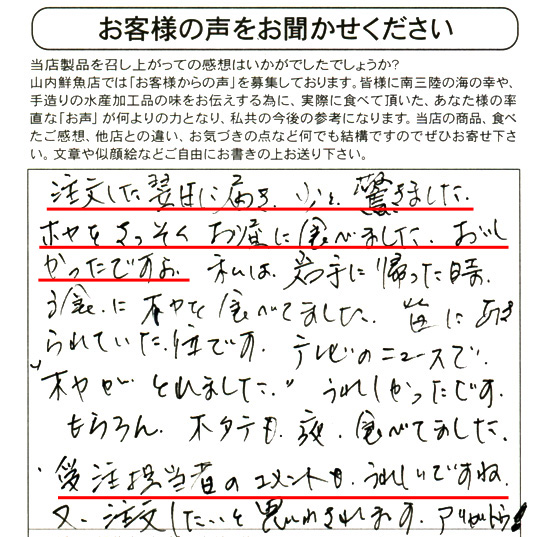 お客様の声をお聞かせください
当店製品を召し上がっての感想はいかがでしたでしょうか?
山内鮮魚店では「お客様からの声」を募集しております。皆様に南三陸の海の幸や、
手造りの水産加工品の味をお伝えする為に、実際に食べて頂いた、あなた様の率
直な「お声」が何よりの力となり、私共の今後の参考になります。当店の商品、食べ
たご感想、他店との違い、お気づきの点など何でも結構ですのでぜひお寄せ下さ
い。文章や似顔絵などご自由にお書きの上お送り下さい。
注文した翌日に届き、少々驚きました。
ホヤをさっそくお昼に食べました。おいし
かったですよ。私は、岩手に帰った時、
食に ホヤを食べてました。笛にあき
られていた位です。テレビのニュースで、
"ホヤがとれました。"うれしかったです。
もちろん、ホタテも、夜、食べてました。
受注担当者のコメントも、うれしいですね。
又、注文したいと思わされます。アリガトウ!